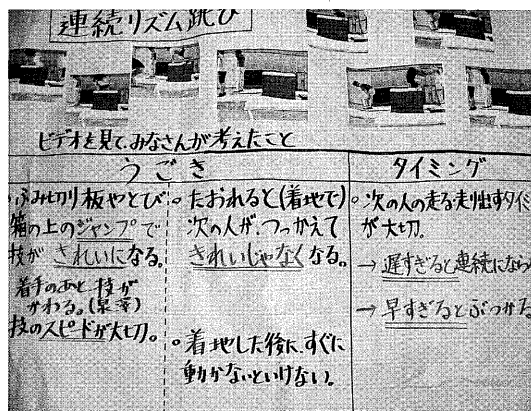 連続リズム跳び
ビデオを見て、みなさんが考えたこと
うごき
ふみ切り板やとび
箱の上のジャンプで
技がきれいになる。
着手のあと技が
かわる。
技のスピードが大切。
。たおれると(着地で)
次の人が、つっかえて
きれいじゃなくなる。
。着地した後に、すぐに
動かないといけない。
タイミング
。次の人の走る走り出すタイミ
が大切。
→遅すぎると連続になら
→早すぎるとぶつかる